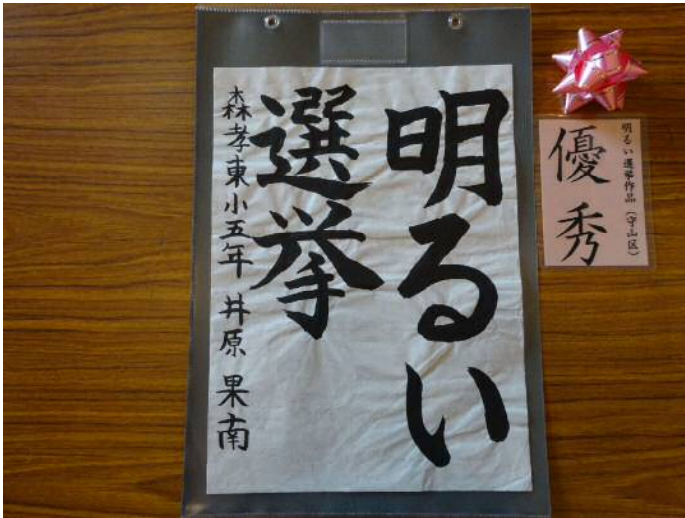 明るい
選挙
森孝東小五年 井原 果南
明るい選挙作品(守山区)
優秀